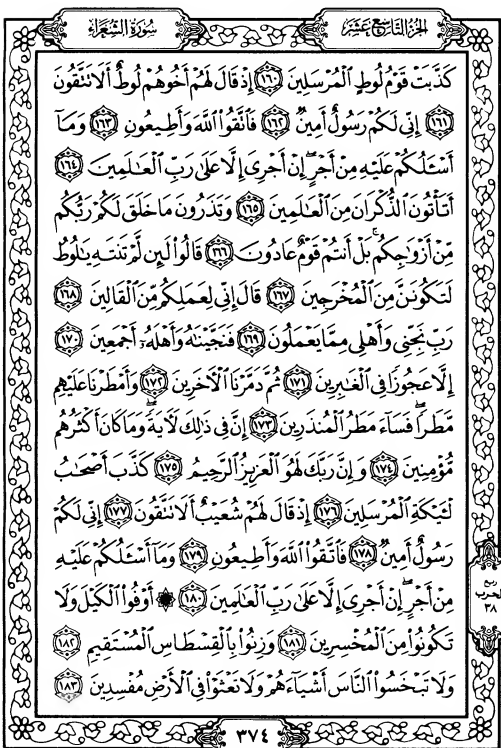 سُورَةُ الشُّعَرَاءِ
الجُزءُ التَّاسِعَ عَشَرَ
كَذَّبَتْ قَوْمُ لُوطٍ ٱلْمُرْسَلِينَ ١٦٠ إِذْ قَالَ لَهُمْ أَخُوهُمْ لُوطٌ أَلَا تَتَّقُونَ
١٦١ إِنِّى لَكُمْ رَسُولٌ أَمِينٌ ١٦٢ فَٱتَّقُوا۟ ٱللَّهَ وَأَطِيعُونِ ١٦٣ وَمَآ
أَسْـَٔلُكُمْ عَلَيْهِ مِنْ أَجْرٍ ۖ إِنْ أَجْرِىَ إِلَّا عَلَىٰ رَبِّ ٱلْعَـٰلَمِينَ ١٦٤
أَتَأْتُونَ ٱلذُّكْرَانَ مِنَ ٱلْعَـٰلَمِينَ ١٦٥ وَتَذَرُونَ مَا خَلَقَ لَكُمْ رَبُّكُم
مِّنْ أَزْوَٰجِكُم ۚ بَلْ أَنتُمْ قَوْمٌ عَادُونَ ١٦٦ قَالُوا۟ لَئِن لَّمْ تَنتَهِ يَـٰلُوطُ
لَتَكُونَنَّ مِنَ ٱلْمُخْرَجِينَ ١٦٧ قَالَ إِنِّى لِعَمَلِكُم مِّنَ ٱلْقَالِينَ ١٦٨
رَبِّ نَجِّنِى وَأَهْلِى مِمَّا يَعْمَلُونَ ١٦٩ فَنَجَّيْنَـٰهُ وَأَهْلَهُۥٓ أَجْمَعِينَ ١٧٠
إِلَّا عَجُوزًا فِى ٱلْغَـٰبِرِينَ ١٧١ ثُمَّ دَمَّرْنَا ٱلْـَٔاخَرِينَ ١٧٢ وَأَمْطَرْنَا عَلَيْهِم
مَّطَرًا ۖ فَسَآءَ مَطَرُ ٱلْمُنذَرِينَ ١٧٣ إِنَّ فِى ذَٰلِكَ لَـَٔايَةً ۖ وَمَا كَانَ أَكْثَرُهُم
مُّؤْمِنِينَ ١٧٤ وَإِنَّ رَبَّكَ لَهُوَ ٱلْعَزِيزُ ٱلرَّحِيمُ ١٧٥ كَذَّبَ أَصْحَـٰبُ
لْـَٔيْكَةِ ٱلْمُرْسَلِينَ ١٧٦ إِذْ قَالَ لَهُمْ شُعَيْبٌ أَلَا تَتَّقُونَ ١٧٧ إِنِّى لَكُمْ
رَسُولٌ أَمِينٌ ١٧٨ فَٱتَّقُوا۟ ٱللَّهَ وَأَطِيعُونِ ١٧٩ وَمَآ أَسْـَٔلُكُمْ عَلَيْهِ
مِنْ أَجْرٍ ۖ إِنْ أَجْرِىَ إِلَّا عَلَىٰ رَبِّ ٱلْعَـٰلَمِينَ ١٨٠ ۞ أَوْفُوا۟ ٱلْكَيْلَ وَلَا
تَكُونُوا۟ مِنَ ٱلْمُخْسِرِينَ ١٨١ وَزِنُوا۟ بِٱلْقِسْطَاسِ ٱلْمُسْتَقِيمِ ١٨٢
وَلَا تَبْخَسُوا۟ ٱلنَّاسَ أَشْيَآءَهُمْ وَلَا تَعْثَوْا۟ فِى ٱلْأَرْضِ مُفْسِدِينَ ١٨٣
ربع
الحزب
٣٨
٣٧٤